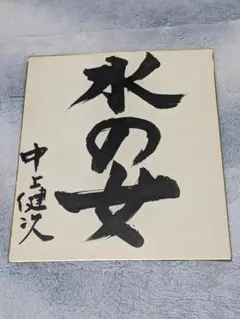 水の女
中上健次